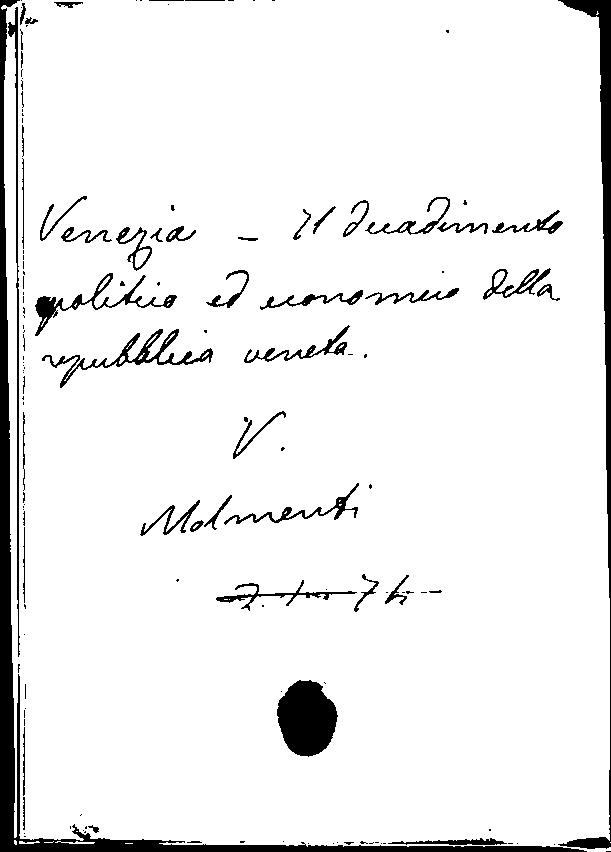 Venezia - Il decadimento
politico ed economico della
repubblica veneta.
V.
Molmenti